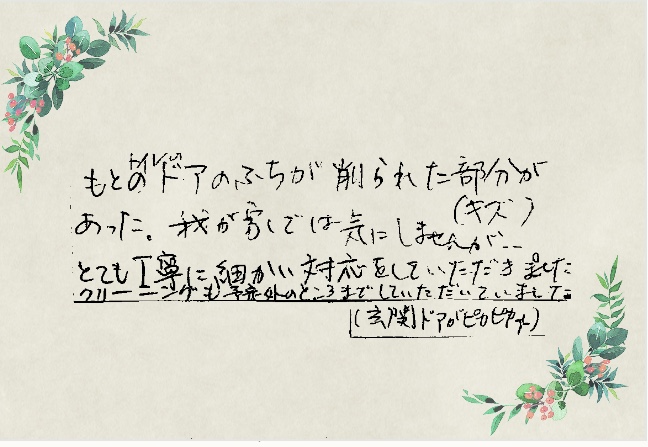 もとのトイレのドアのふちが削られた部分が
(キズ)
あった。我が家では気にしませんが…
とても丁寧に細かい対応をしていただきました
クリーニングも予定外のところまでしていただいていました
(玄関ドアがピカピカ)